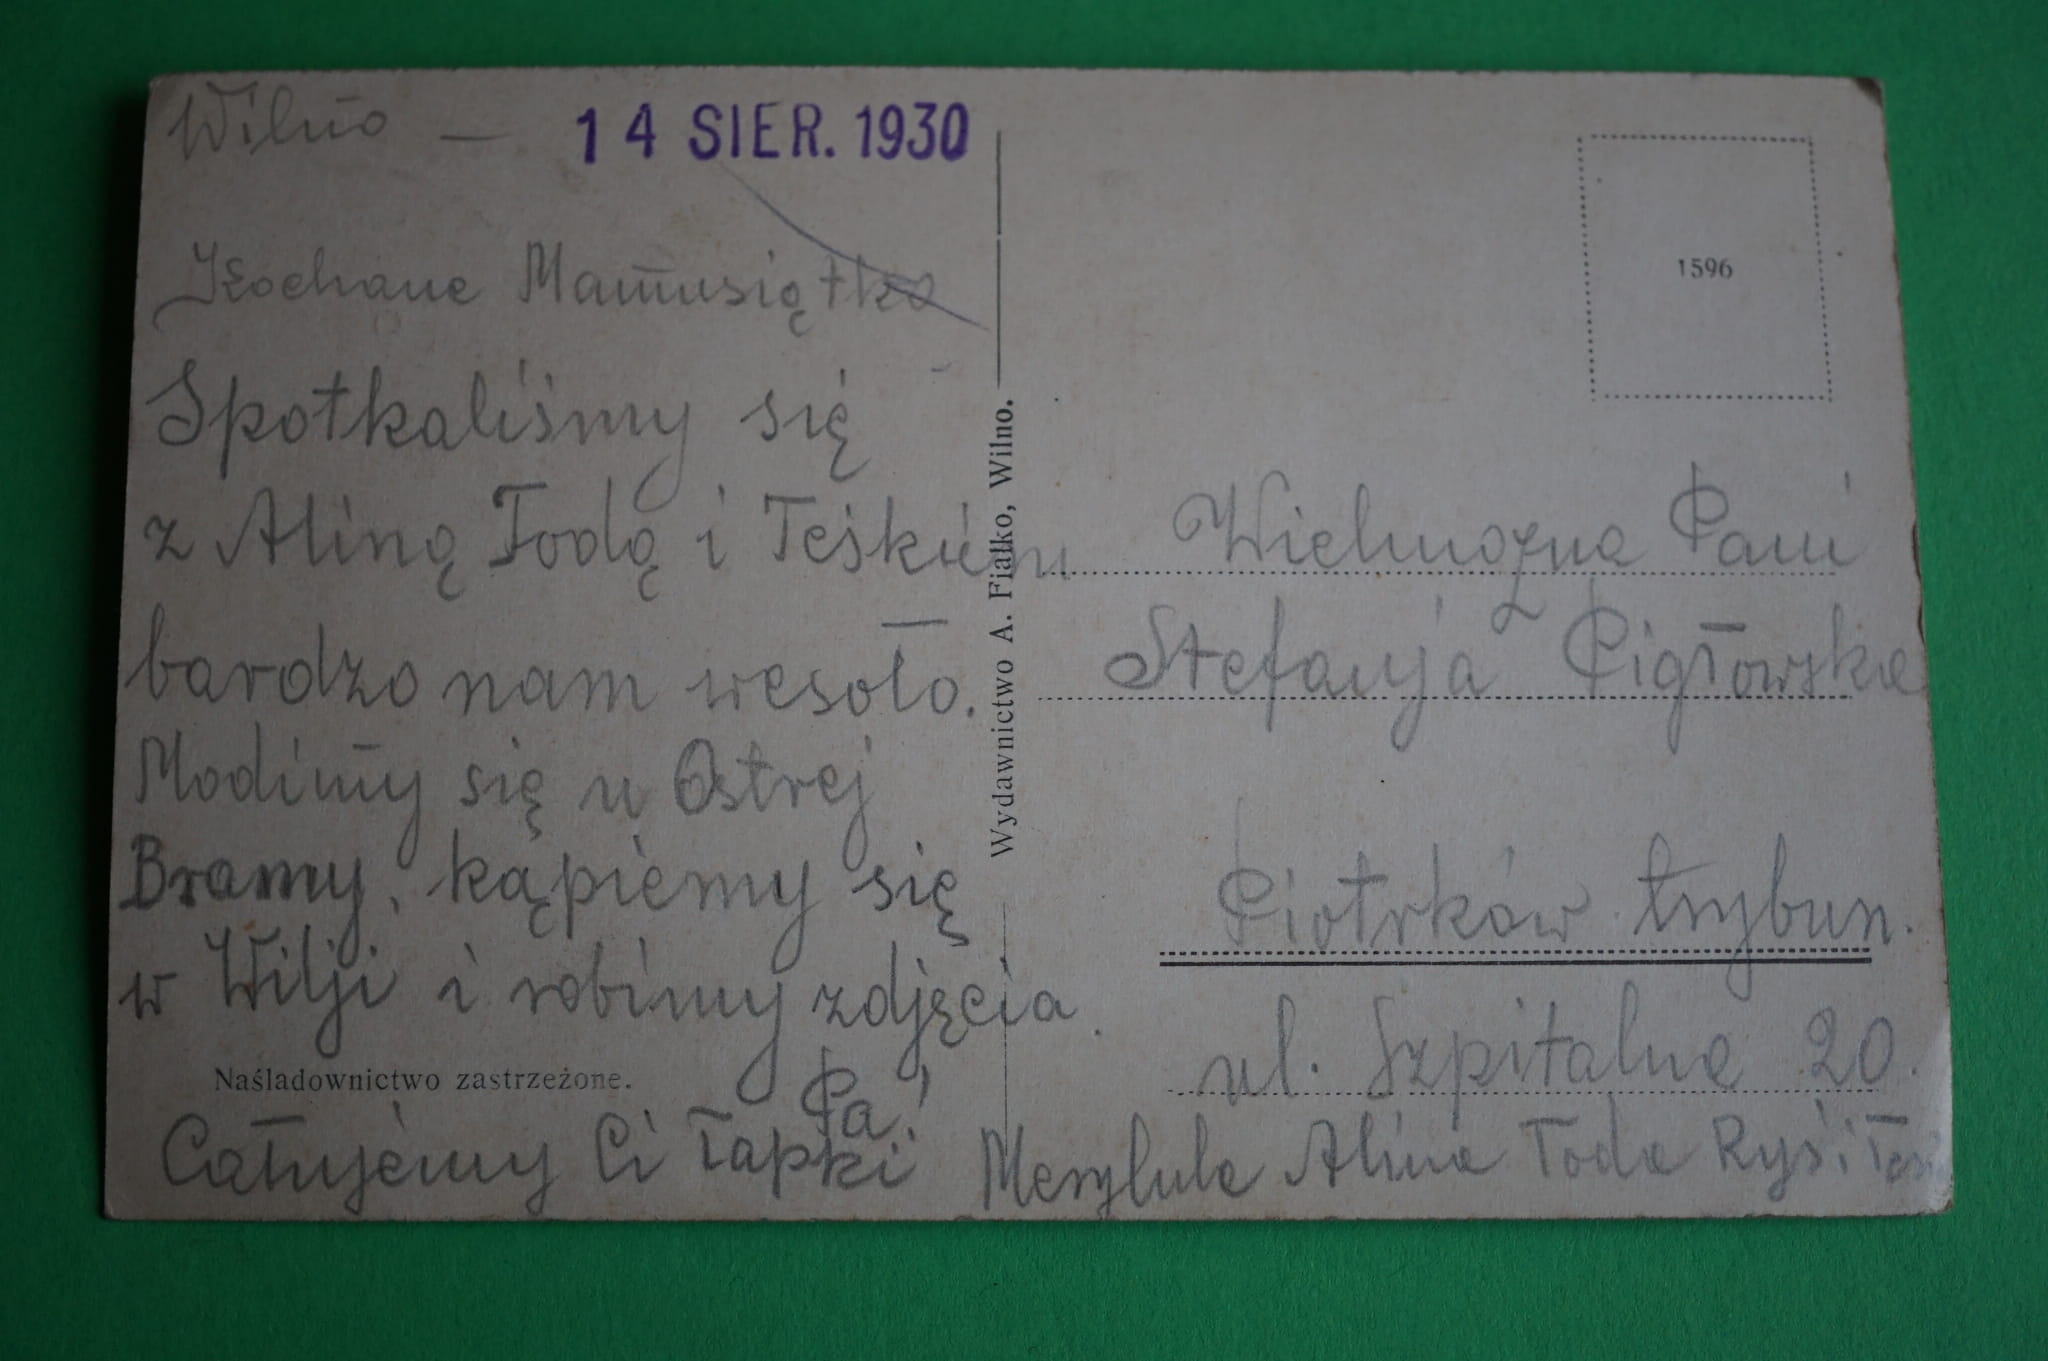 Wilno — 14 SIER. 1930
Kochane Mamusiątko
Spotkaliśmy się
z Aliną Todą i Teśkiem
bardzo nam wesoło.
Modlimy się u Ostrej
Bramy, kąpiemy się
w Wilji i robimy zdjęcia.
Pa!
Naśladownictwo zastrzeżone.
Całujemy Ci łapki Marylula Alina Toda Ryś i Teś
Wydawnictwo A. Fiałko, Wilno.
1596
Wielmożna Pani
Stefanja Pigłowska
Piotrków trybun.
ul. Szpitalna 20.